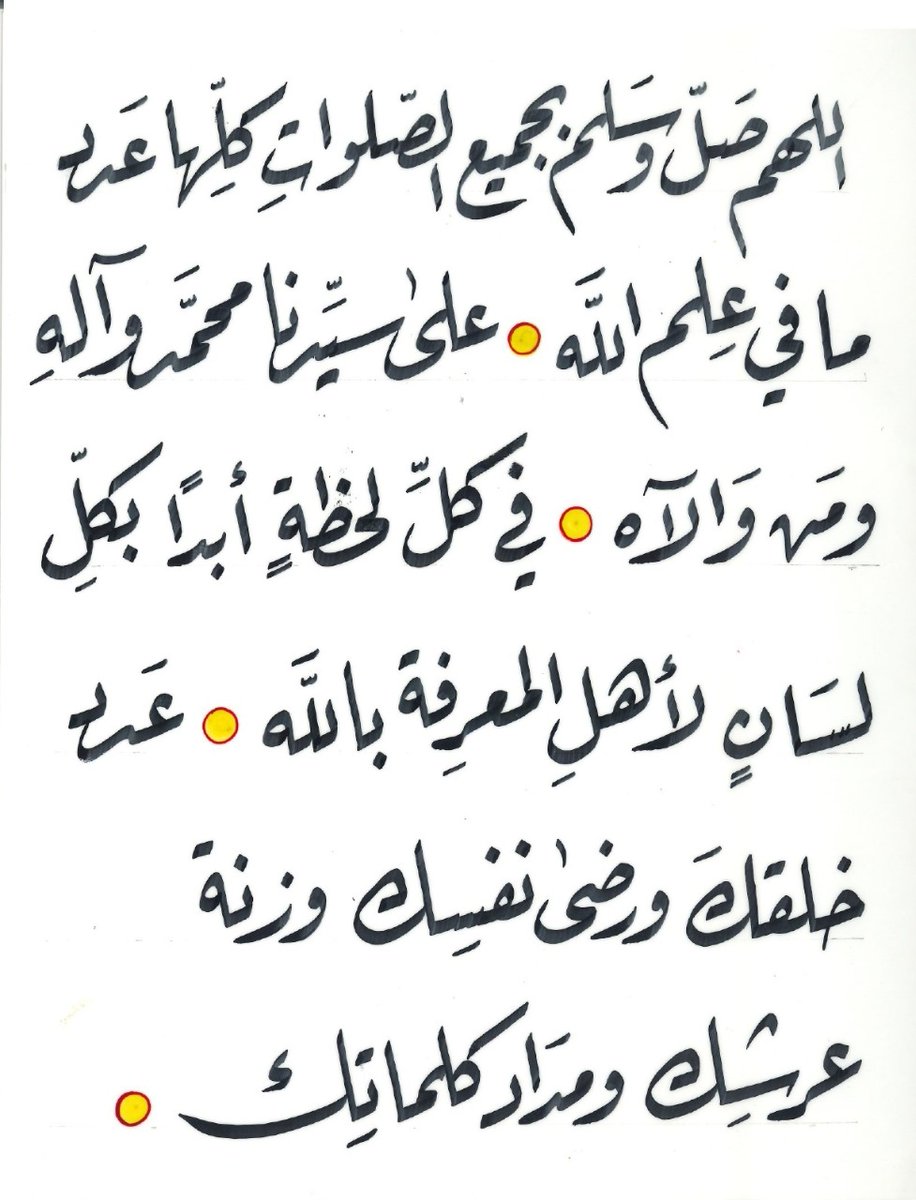 اللهم صَلّ وَسَلم بجميع الصّلواتِ كلِّها عَدد
ما في عِلم اللَّه على سيِّدنا محمَّد وآلهِ
ومَن وَالآه في كلِّ لحظةٍ أبدًا بكلِّ
لسَانٍ لأهلِ المعرِفة باللَّه عَدد
خلقكَ ورضى نفسِك وزنة
عرشِك ومدَاد كلماتِك